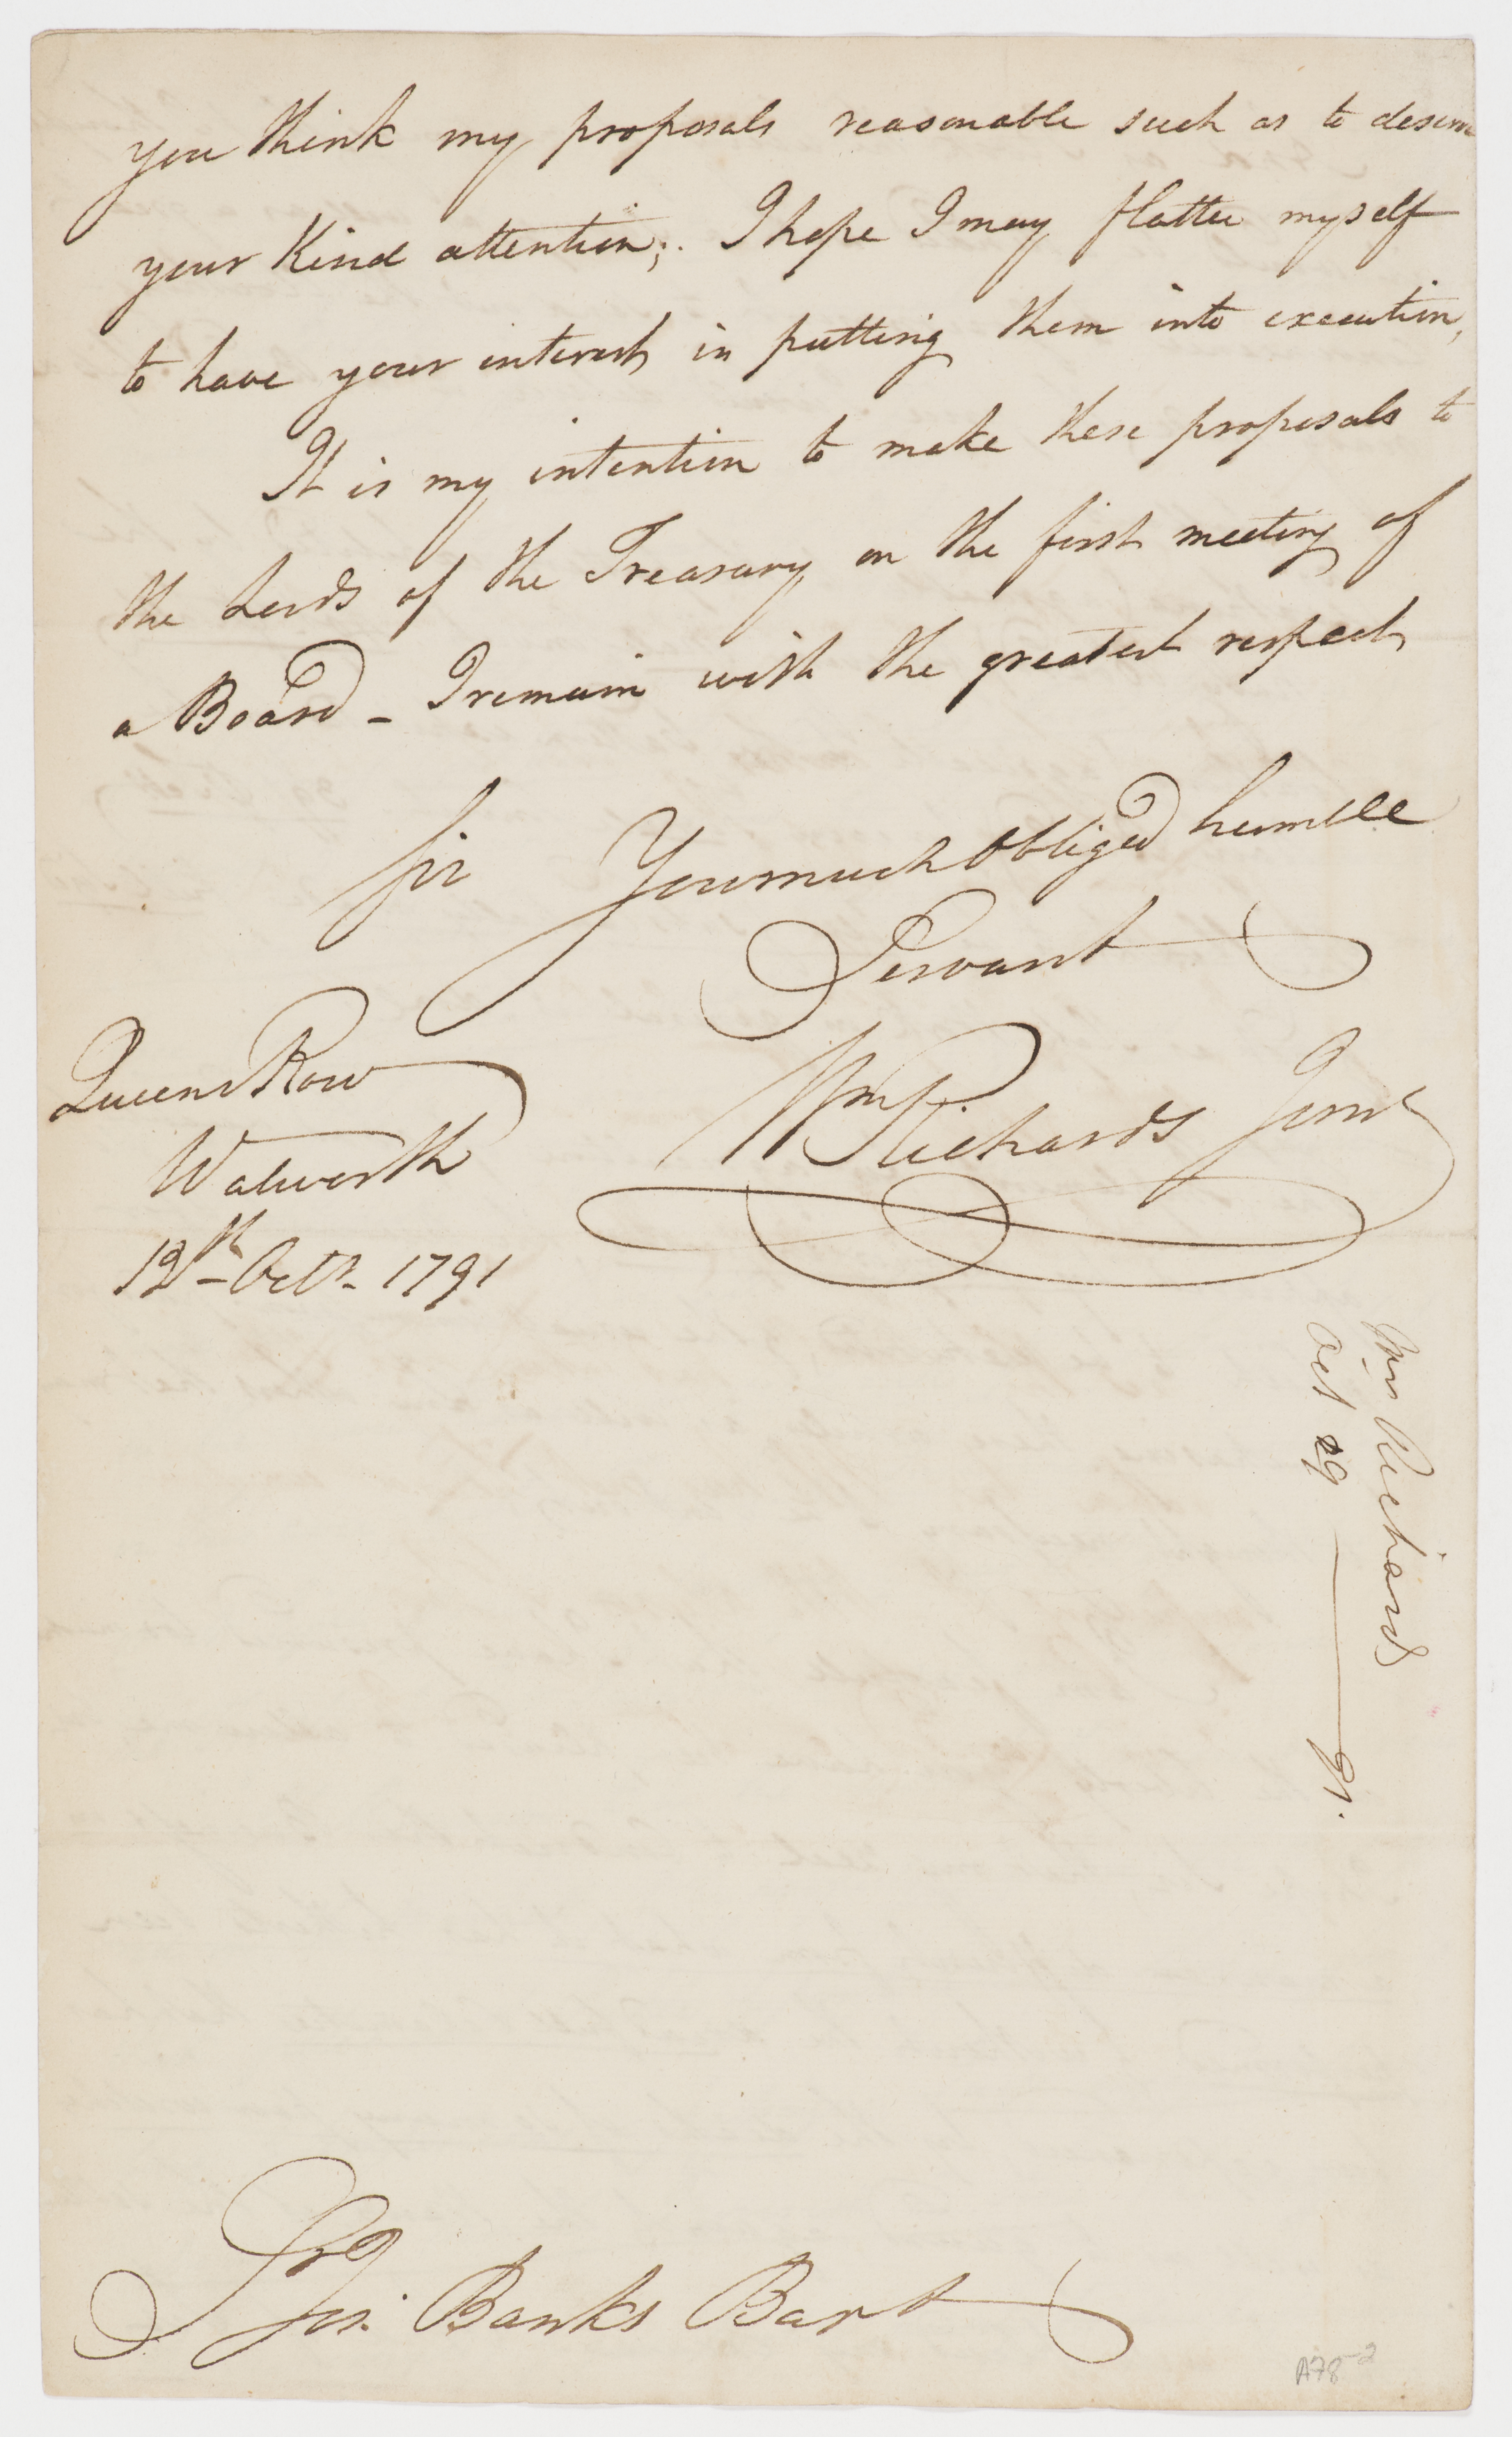 you think my proposals reasonable such as to deserve
your Kind attention; I hope I may flatter myself
to have your interest in putting them into execution,
It is my intention to make these proposals to
the Lords of the Treasury on the first meeting of
a Board – I remain with the greatest respect
Sir Your much Obliged humble
Servant
Wm Richards Junr
Queens Row
Walworth
12th Octr 1791
Wm Richards
Oct 29 — 91.
Sir Jos: Banks Bart
A78-2